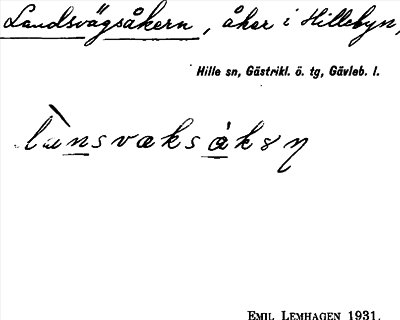 Landsvägsåkern, åker i Hillebyn,
Hille sn, Gästrikl. ö. tg, Gävleb. l.
lànsvaksåksņ
EMIL LEMHAGEN 1931.